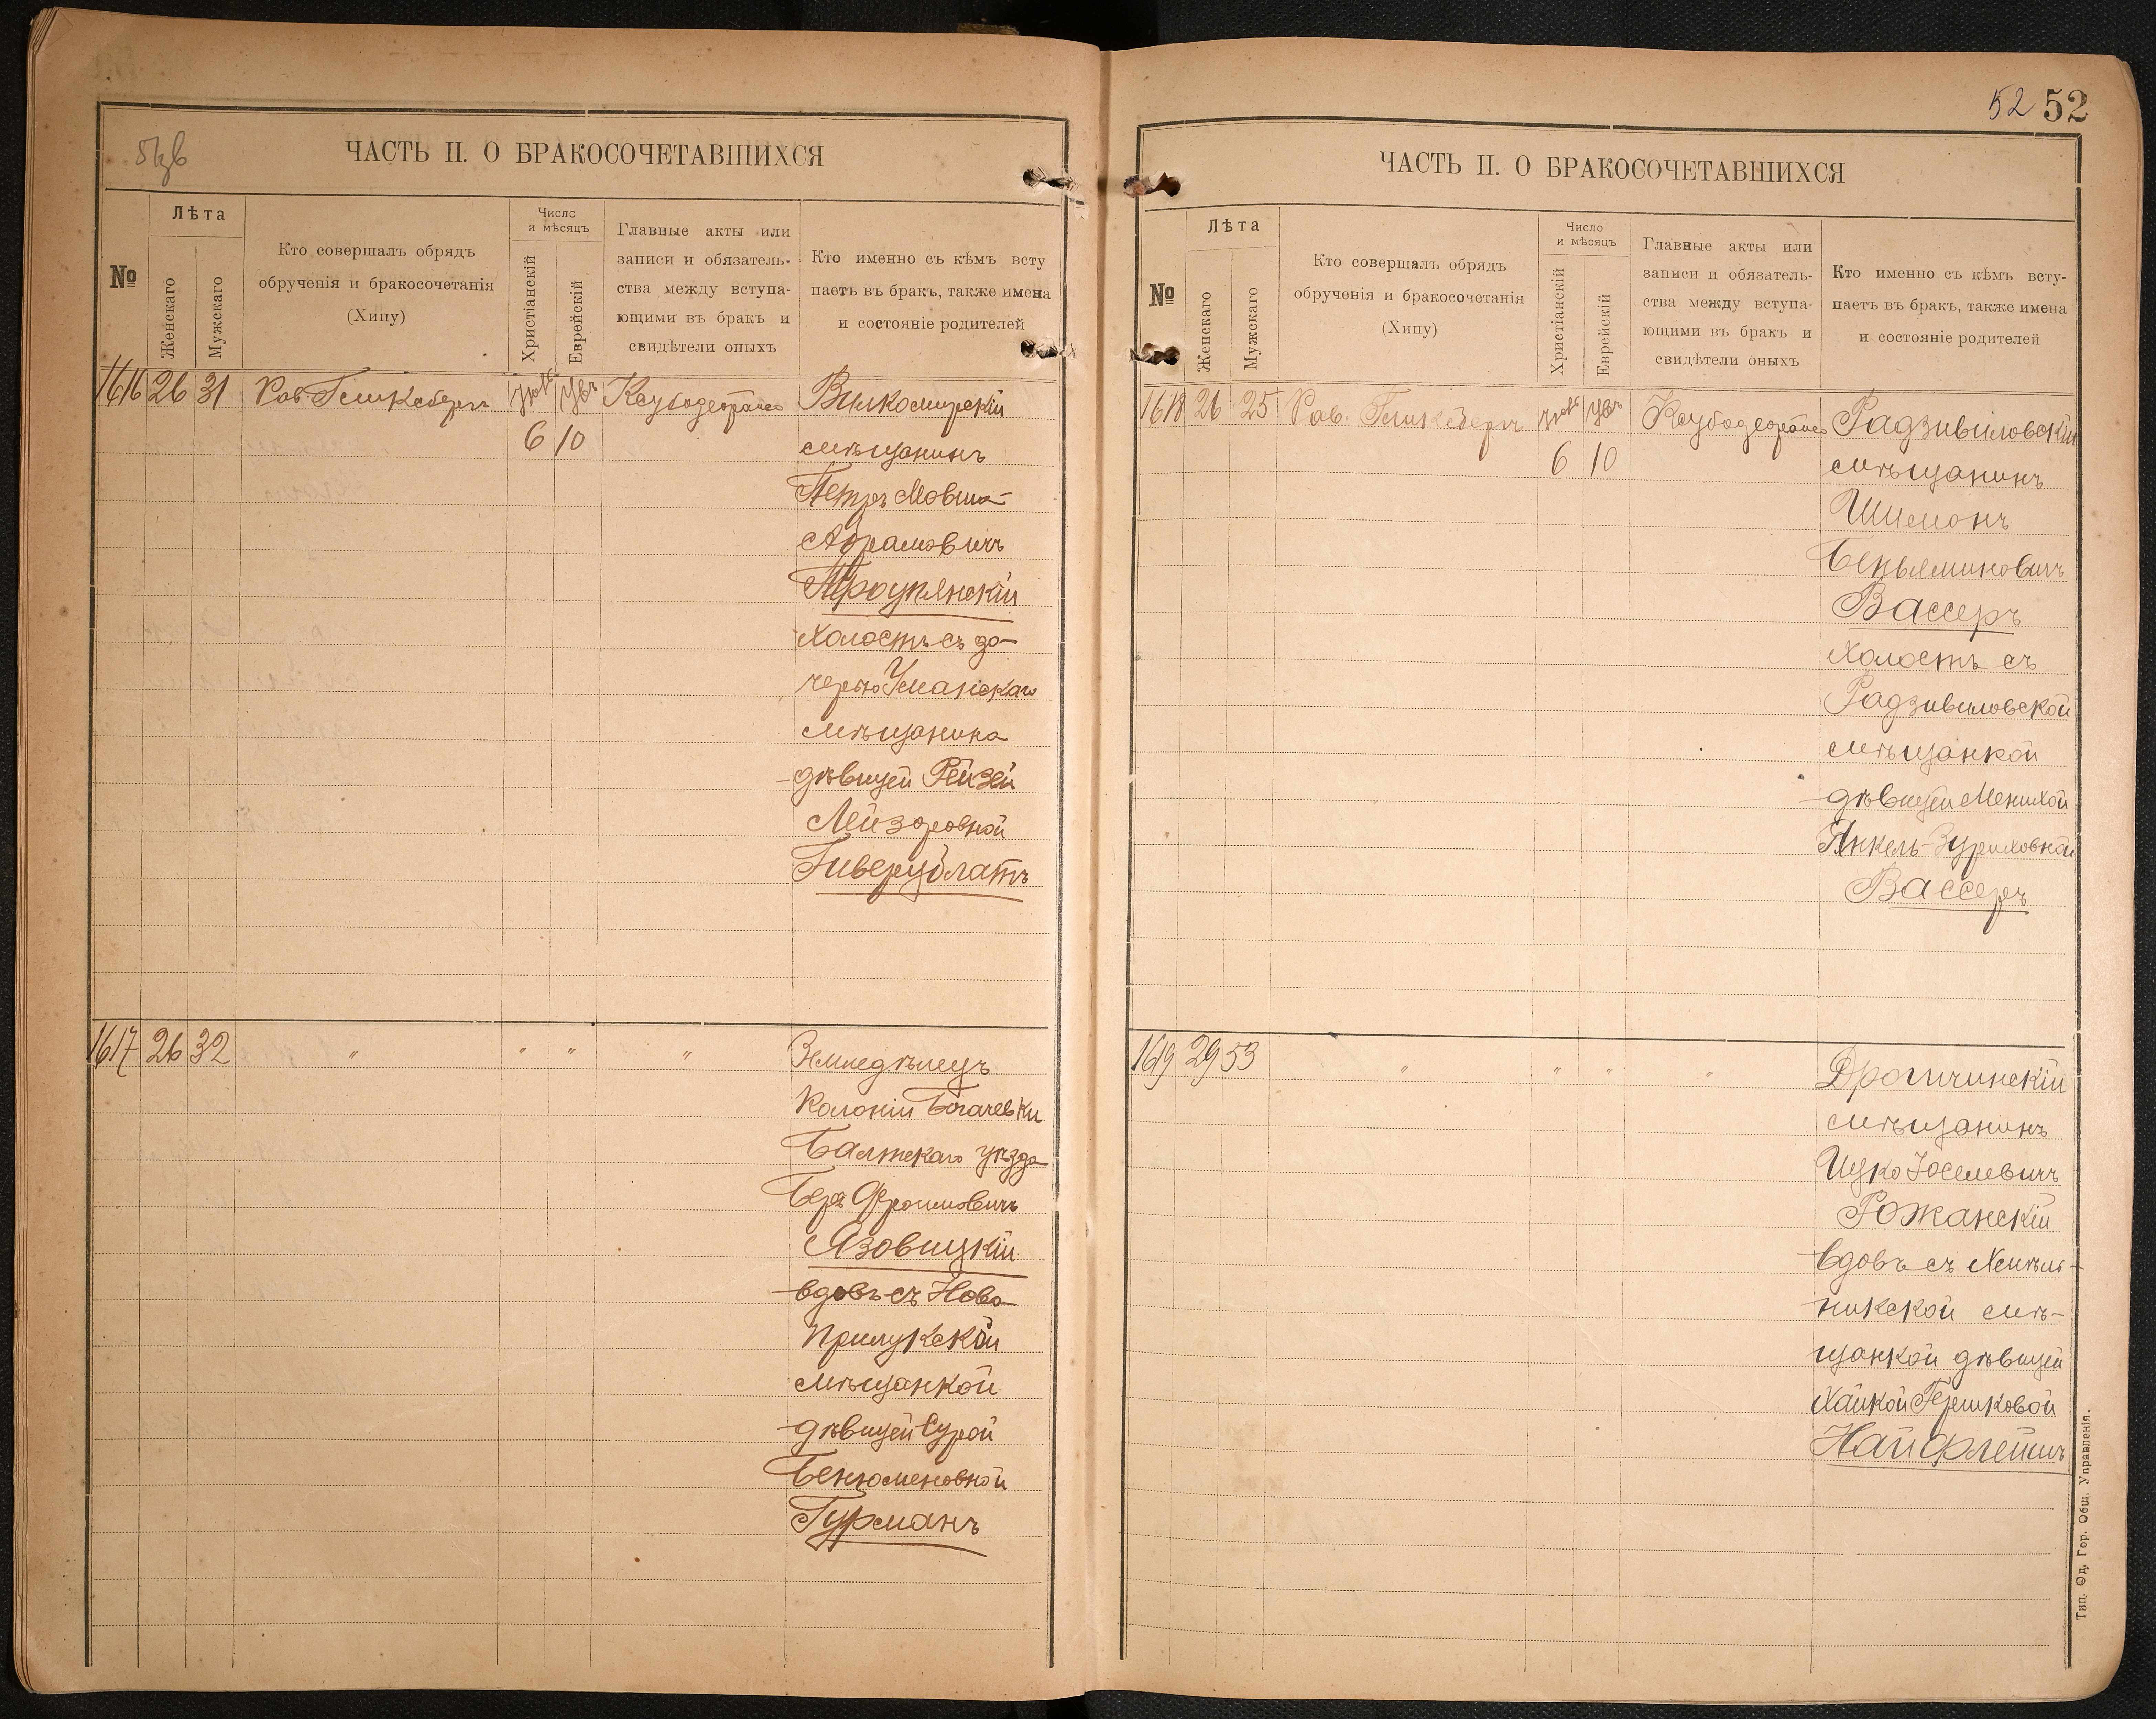 51 об
ЧАСТЬ II. О БРАКОСОЧЕТАВШИХСЯ
№
Лѣта
Женскаго
Мужскаго
Кто совершалъ обрядъ
обрученія и бракосочетанія
(Хипу)
Число
и мѣсяцъ
Христіанскій
Еврейскій
Главные акты или
записи и обязатель-
ства между вступа-
ющими въ бракъ и
свидѣтели оныхъ
Кто именно съ кѣмъ всту
паетъ въ бракъ, также имена
и состояніе родителей
1616 26 31 Рав. Гликсбергъ
6 10
Вилкомирскій
мѣщанинъ
Петръ Мовша-
Абрамовичъ
Троупянскій
холостъ съ до-
черью Уманскаго
мѣщанина
дѣвицей Рейзей
Лейзоровной
Гиверцблатъ
1617 26 32 " " " "
Земледѣлецъ
Колоніи Богачевки
Балтскаго уѣзда
Беръ Фроимовичъ
Язовицкій
вдовъ съ Ново
Прилукской
мѣщанкой
дѣвицей Сурой
Бенюменовной
Гурманъ
52 52
ЧАСТЬ II. О БРАКОСОЧЕТАВШИХСЯ
№
Лѣта
Женскаго
Мужскаго
Кто совершалъ обрядъ
обрученія и бракосочетанія
(Хипу)
Число
и мѣсяцъ
Христіанскій
Еврейскій
Главные акты или
записи и обязатель-
ства между вступа-
ющими въ бракъ и
свидѣтели оныхъ
Кто именно съ кѣмъ всту-
паетъ въ бракъ, также имена
и состояніе родителей
1618 26 25 Рав. Гликсбергъ
6 10
Радзивиловскій
мѣщанинъ
Шимонъ
Беньяминовичъ
Вассеръ
холостъ съ
Радзивиловской
мѣщанкой
дѣвицей Менихой
Янкель-Зуриховной
Вассеръ
1619 29 53 " " " "
Дрогичинскій
мѣщанинъ
Ицко Іоселевичъ
Рожанскій
вдовъ съ Хмѣль-
никской мѣ-
щанкой дѣвицей
Хайкой Гершковой
Найфлейшъ
Тип. Од. Гор. Общ. Управленія.